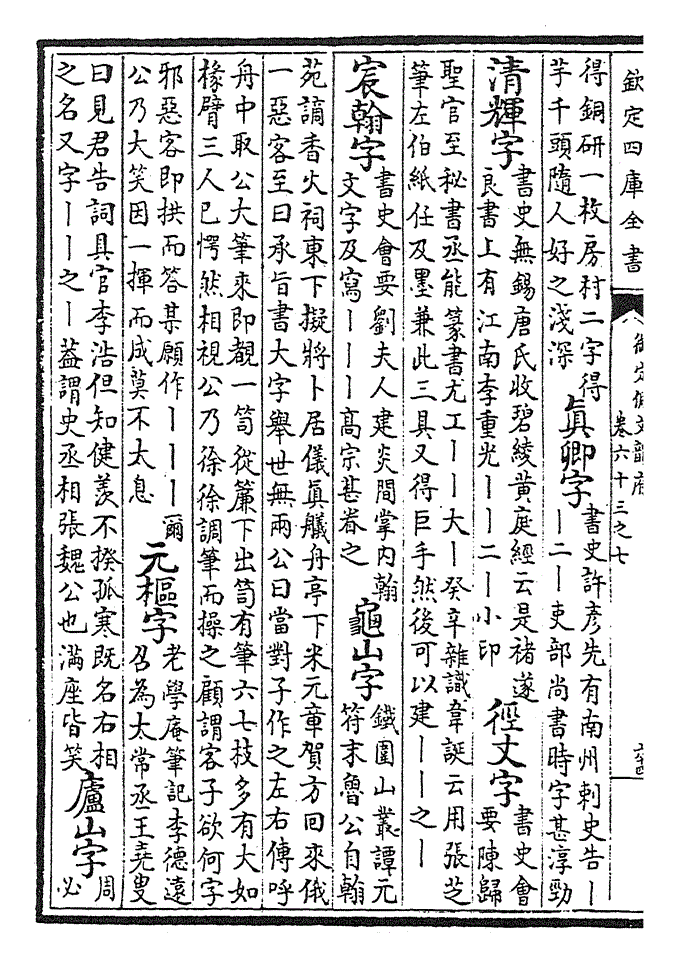 欽定四庫全書
御定佩文韻府
卷六十三之七
得銅研一枚房村二字得
芋千頭隨人好之淺深
真卿字
書史許彦先有南州刺史告丨
丨二丨吏部尚書時字甚淳勁
清輝字
書史無錫唐氏收碧綾黄庭經云是褚遂
良書上有江南李重光丨丨二丨小印
徑丈字
書史會
要陳歸
聖官至秘書丞能篆書尤工丨丨大丨癸辛雜識韋誕云用張芝
筆左伯紙任及墨兼此三具又得巨手然後可以建丨丨之丨
宸翰字
書史會要劉夫人建炎間掌内翰
文字及寫丨丨丨高宗甚眷之
龜山字
鐵圍山叢譚元
符末魯公自翰
苑謫香火祠東下擬將卜居儀真艤舟亭下米元章賀方回來俄
一惡客至曰承旨書大字舉世無兩公曰當對子作之左右傳呼
舟中取公大筆來即覩一笥從簾下出笥有筆六七枝多有大如
椽臂三人已愕然相視公乃徐徐調筆而操之顧謂客子欲何字
邪惡客即拱而答某願作丨丨丨爾
公乃大笑因一揮而成莫不太息
元樞字
老學庵筆記李德遠
召為太常丞王堯叟
曰見君告詞具官李浩但知健羨不揆孤寒既名右相
之名又字丨丨之丨葢謂史丞相張魏公也滿座皆笑
廬山字
周
必